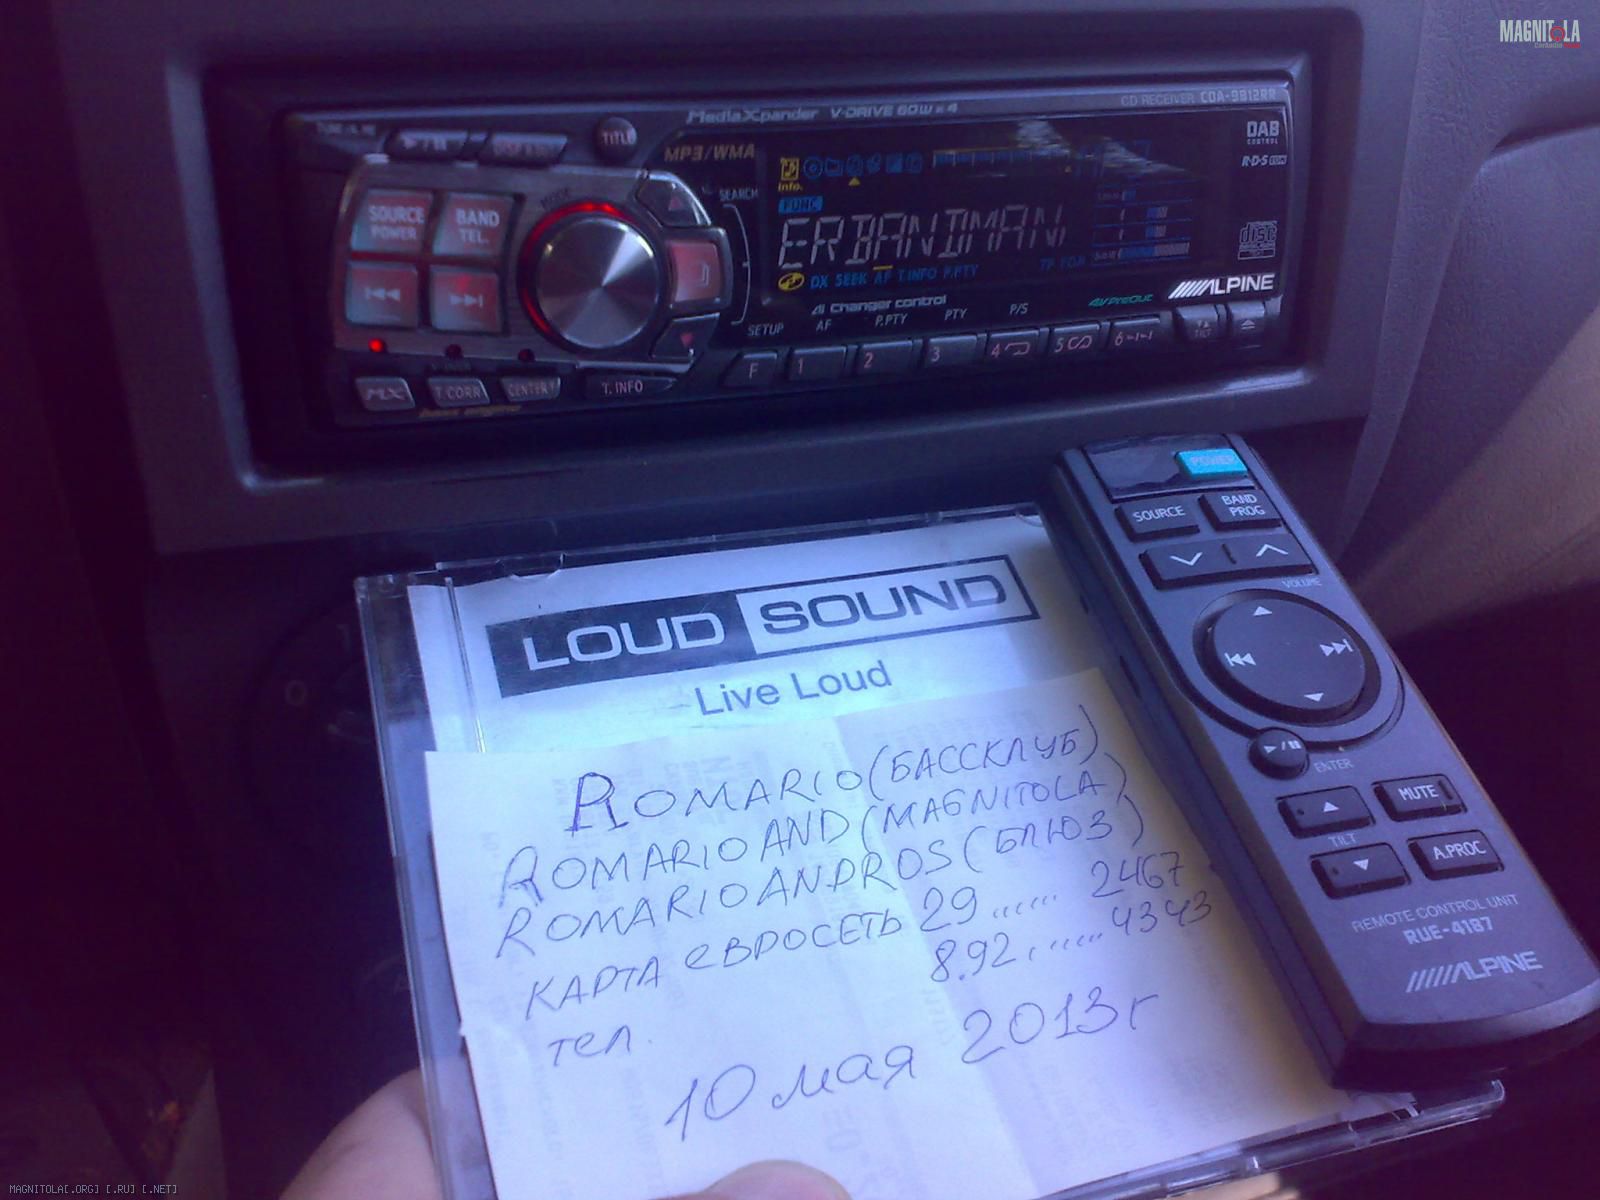 MAGNITOLA
CarAudio
MediaXpander V-DRIVE 60W x 4
CD RECEIVER CDA-9812RR
TITLE
MP3/WMA
SEARCH
MODE
SOURCE
POWER
BAND
TEL.
Info.
FUNC
ERBANDMAN
DX SEEK AF T.INFO P.PTY
DAB
CONTROL
R·D·S EON
disc
ALPINE
Ai Changer control
4V PreOut
SETUP AF P.PTY PTY P/S
F 1 2 3 4 5 6
TILT
MX T.CORR CENTER T.INFO
bass engine
LOUD SOUND
Live Loud
ROMARIO (БАССКЛУБ)
ROMARIO AND (MAGNITOLA)
ROMARIOANDROS (БЛЮЗ)
КАРТА ЕВРОСЕТЬ 29...... 2467
тел. 8.92......4343
10 мая 2013г
POWER
SOURCE
BAND
PROG
VOLUME
ENTER
MUTE
TILT
A.PROC
REMOTE CONTROL UNIT
RUE-4187
ALPINE
MAGNITOLA[.ORG] [.RU] [.NET]